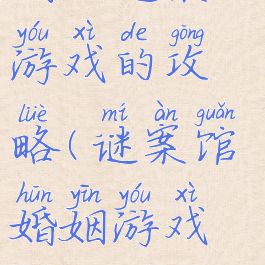 yóu xì de gōng
游戏的攻
lüè mí àn guǎn
略(谜案馆
hūn yīn yóu xì
婚姻游戏